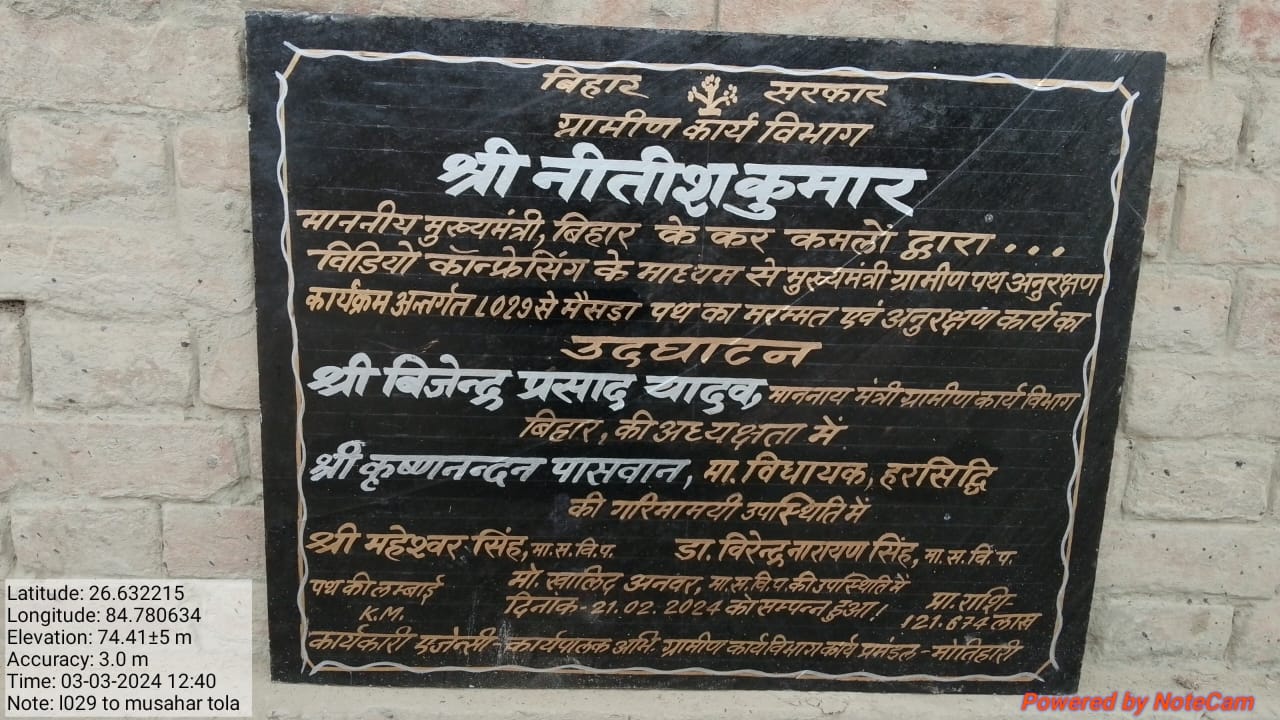 बिहार सरकार
ग्रामीण कार्य विभाग
श्री नीतीश कुमार
माननीय मुख्यमंत्री, बिहार के कर कमलों द्वारा ...
विडियो कॉन्फ्रेसिंग के माध्यम से मुख्यमंत्री ग्रामीण पथ अनुरक्षण
कार्यक्रम अन्तर्गत L029 से मैसड़ा पथ का मरम्मत एवं अनुरक्षण कार्य का
उदघाटन
श्री बिजेन्द्र प्रसाद यादव, माननाय मंत्री ग्रामीण कार्य विभाग
बिहार, की अध्यक्षता में
श्री कृष्णनन्दन पासवान, मा. विधायक, हरसिद्धि
की गरिमामयी उपस्थिति में
श्री महेश्वर सिंह, मा.स.वि.प. डा. विरेन्द्र नारायण सिंह, मा.स.वि.प.
पथ की लम्बाई मो. खालिद अनवर, मा.स.वि.प. की उपस्थिति में
K.M. दिनांक-21.02.2024 का सम्पन्न हुआ। प्रा. राशि-
121.674 लाख
कार्यकारी एजेन्सी-कार्यपालक अभि. ग्रामीण कार्य विभाग कार्य प्रमंडल-मोतिहारी
Latitude: 26.632215
Longitude: 84.780634
Elevation: 74.41±5 m
Accuracy: 3.0 m
Time: 03-03-2024 12:40
Note: l029 to musahar tola
Powered by NoteCam